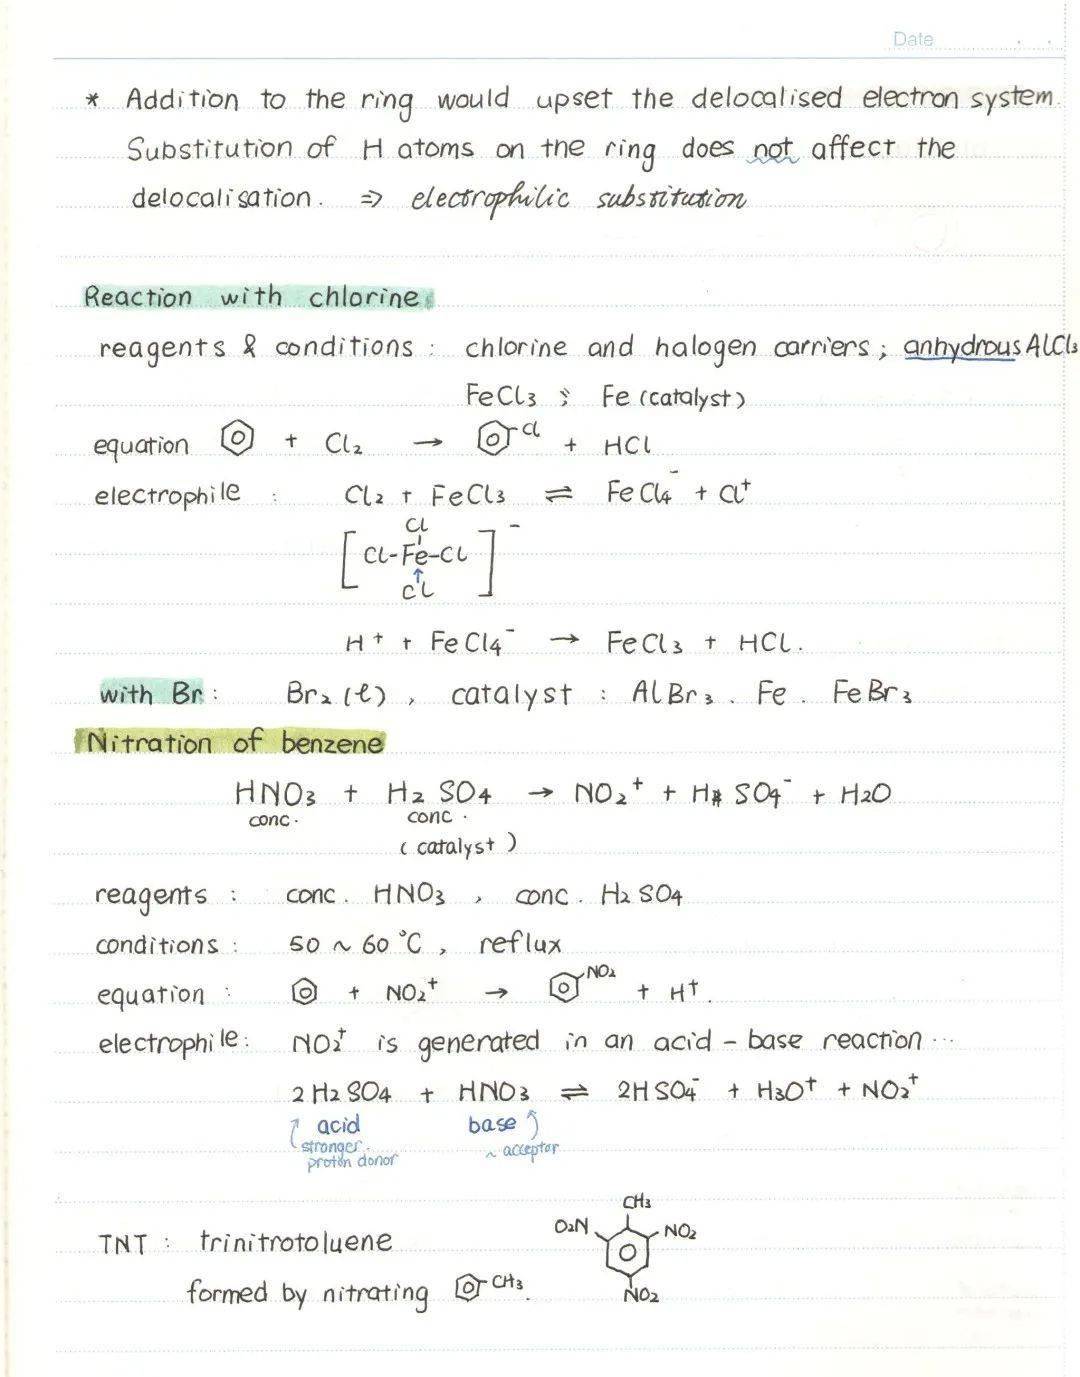 Date
* Addition to the ring would upset the delocalised electron system.
Substitution of H atoms on the ring does not affect the
delocalisation. ⇒ electrophilic substitution
Reaction with chlorine
reagents & conditions : chlorine and halogen carriers ; anhydrous AlCl₃
FeCl₃ ; Fe (catalyst)
equation + Cl₂ → Cl + HCl
electrophile : Cl₂ + FeCl₃ ⇌ FeCl₄⁻ + Cl⁺
Cl
[ Cl-Fe-Cl ]⁻
↑
Cl
H⁺ + FeCl₄⁻ → FeCl₃ + HCl.
with Br : Br₂ (l) , catalyst : AlBr₃ . Fe . FeBr₃
Nitration of benzene
HNO₃ + H₂SO₄ → NO₂⁺ + HSO₄⁻ + H₂O
conc. conc.
(catalyst)
reagents : conc. HNO₃ , conc. H₂SO₄
conditions : 50 ~ 60 °C , reflux
equation : + NO₂⁺ → NO₂ + H⁺.
electrophile : NO₂⁺ is generated in an acid - base reaction ...
2H₂SO₄ + HNO₃ ⇌ 2HSO₄⁻ + H₃O⁺ + NO₂⁺
acid base
stronger ~ acceptor
proton donor
CH₃
O₂N NO₂
TNT : trinitrotoluene
formed by nitrating CH₃.
NO₂